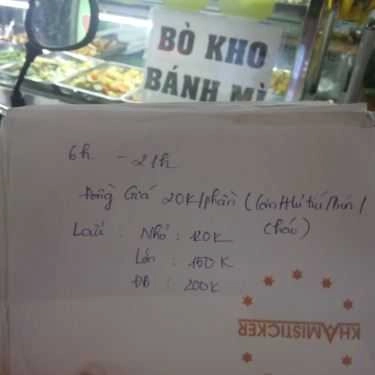 BÒ KHO
BÁNH MÌ
6h - 21h
Đồng Giá 20K/phần (Cơm/Hủ tiếu/Bún/
Cháo)
Lẩu : Nhỏ : 120K
Lớn : 150K
ĐB : 200K
KHAMISTICKER